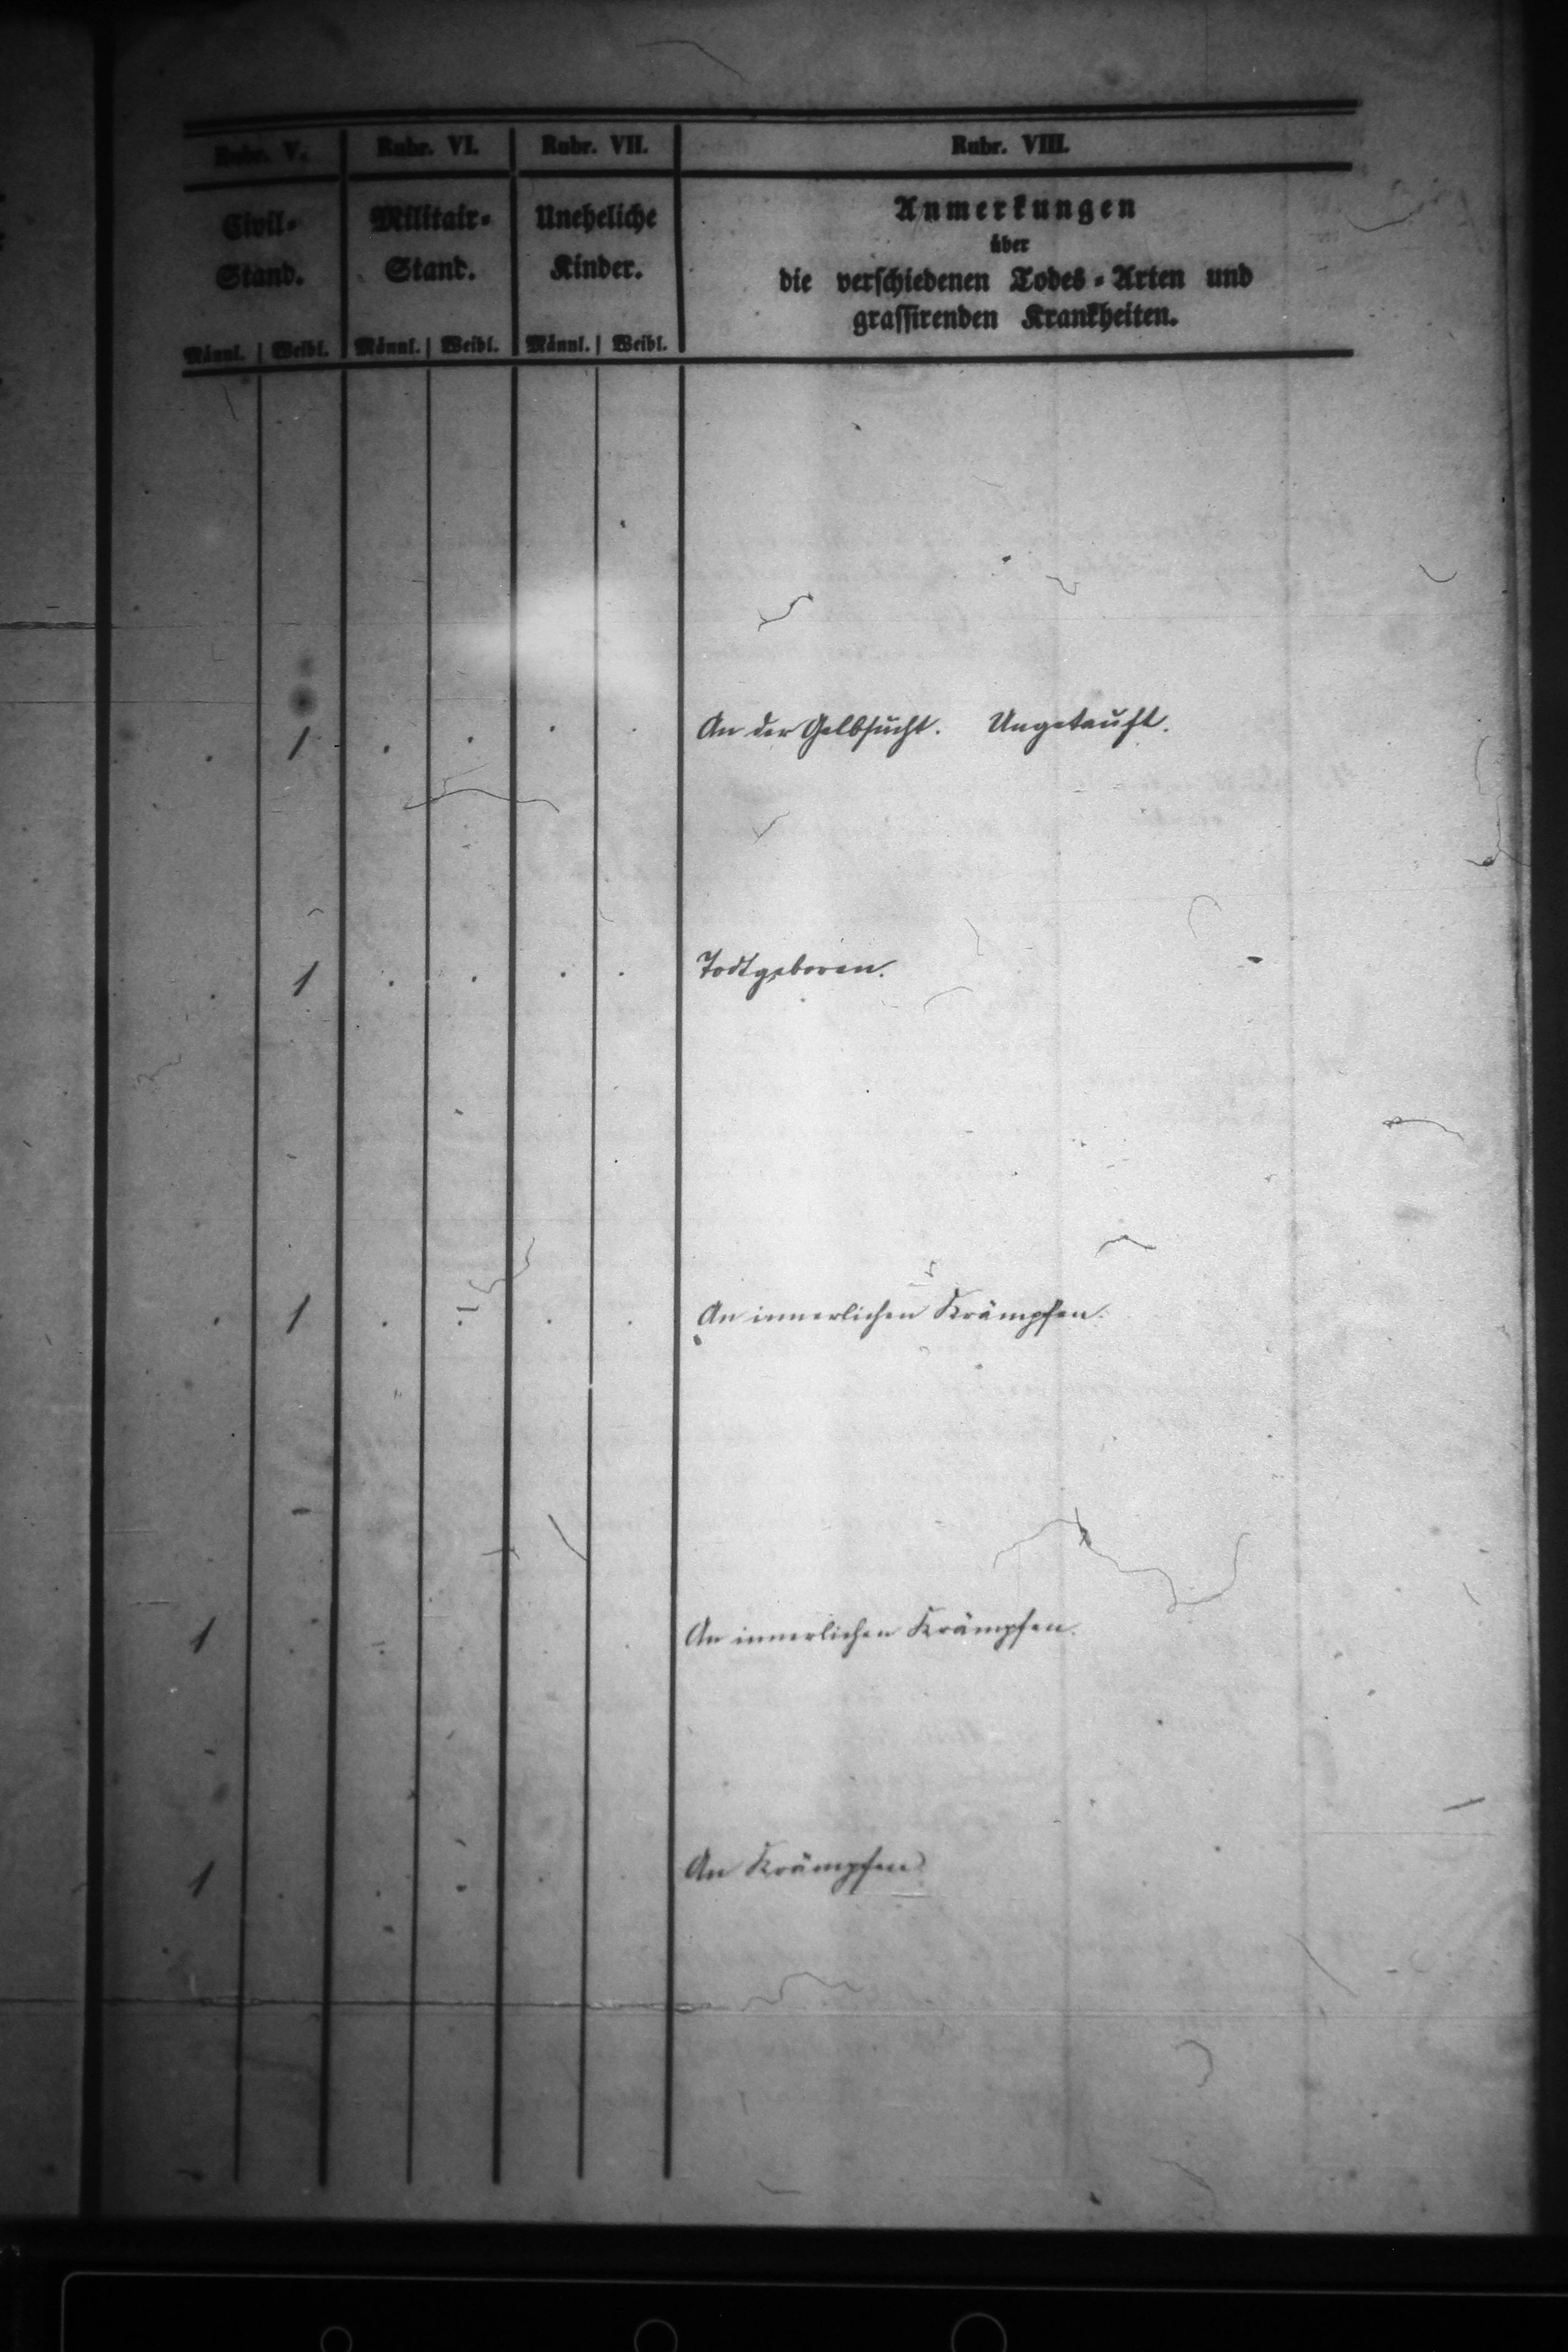 Rubr. V. Rubr. VI. Rubr. VII. Rubr. VIII.
Civil- Militair- Uneheliche Anmerkungen
über
Stand. Stand. Kinder. die verschiedenen Todes-Arten und
grassirenden Krankheiten.
Männl. Weibl. Männl. Weibl. Männl. Weibl.
. 1 . . . . An der Gelbsucht. Ungetauft.
. 1 . . . . Todtgeboren.
. 1 . . . . An innerlichen Krämpfen.
1 An innerlichen Krämpfen.
1 . . . . . An Krämpfen